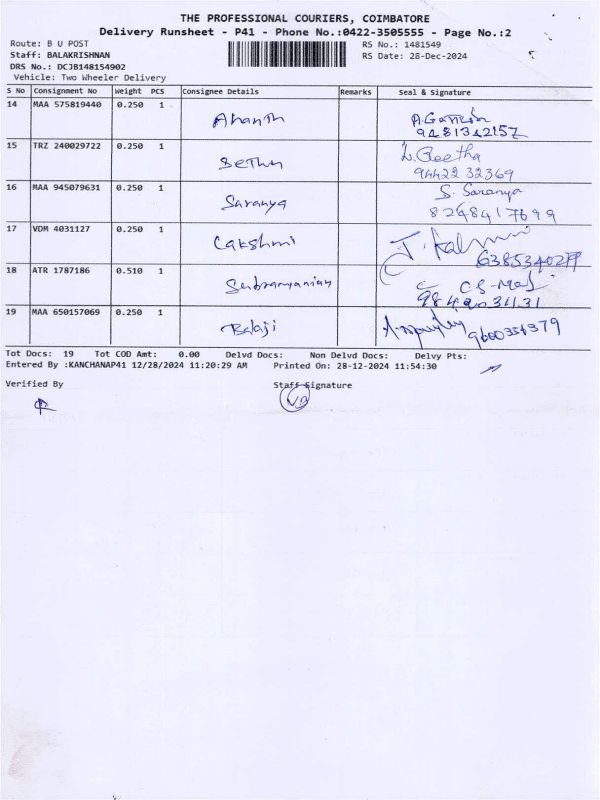 THE PROFESSIONAL COURIERS, COIMBATORE
Delivery Runsheet - P41 - Phone No.:0422-3505555 - Page No.:2
Route: B U POST RS No.: 1481549
Staff: BALAKRISHNAN RS Date: 28-Dec-2024
DRS No.: DCJB148154902
Vehicle: Two Wheeler Delivery
S No Consignment No Weight PCS Consignee Details Remarks Seal & Signature
14 MAA 575819440 0.250 1 Ananth
9481342157
15 TRZ 240029722 0.250 1 Sethu Geetha
94422 32369
16 MAA 945079631 0.250 1 Saranya S. Saranya
8248417699
17 VDM 4031127 0.250 1 Lakshmi
18 ATR 1787186 0.510 1 Subramanian
19 MAA 650157069 0.250 1 Balaji
Tot Docs: 19 Tot COD Amt: 0.00 Delvd Docs: Non Delvd Docs: Delvy Pts:
Entered By :KANCHANAP41 12/28/2024 11:20:29 AM Printed On: 28-12-2024 11:54:30
Verified By Staff Signature